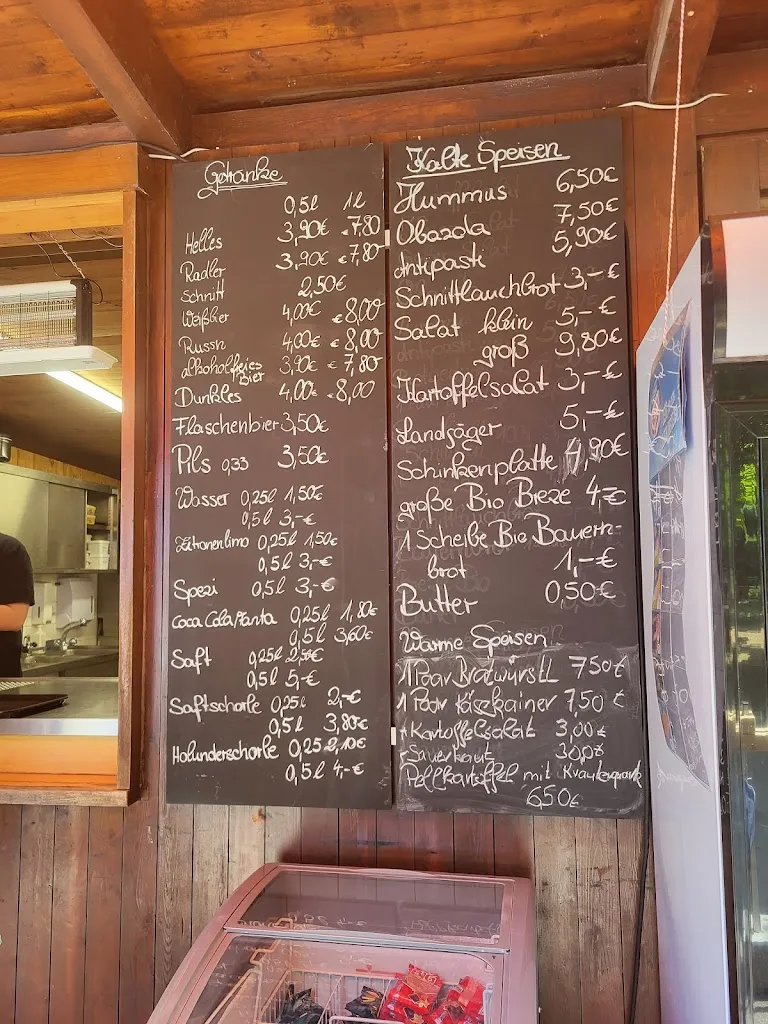 Getränke
0,5l 1l
Helles 3,90€ €7,80
Radler 3,90€ €7,80
Schnitt 2,50€
Weißbier 4,00€ €8,00
Russn 4,00€ €8,00
alkoholfreies Bier 3,90€ €7,80
Dunkles 4,00€ €8,00
Flaschenbier 3,50€
Pils 0,33 3,50€
Wasser 0,25l 1,50€
0,5l 3,-€
Zitronenlimo 0,25l 1,50€
0,5l 3,-€
Spezi 0,5l 3,-€
Coca Cola/Fanta 0,25l 1,80€
0,5l 3,60€
Saft 0,25l 2,50€
0,5l 5,-€
Saftschorle 0,25l 2,-€
0,5l 3,80€
Holunderschorle 0,25l 2,10€
0,5l 4,-€
Kalte Speisen
Hummus 6,50€
Obazda 7,50€
Antipasti 5,90€
Schnittlauchbrot 3,-€
Salat klein 5,-€
groß 9,80€
Kartoffelsalat 3,-€
Landjäger 5,-€
Schinkenplatte 4,90€
große Bio Breze 4,-€
1 Scheibe Bio Bauern-
brot 1,-€
Butter 0,50€
Warme Speisen
1 Paar Bratwürstl 7,50€
1 Paar Käsekrainer 7,50€
Kartoffelsalat 3,00€
Sauerkraut 3,00€
Pellkartoffel mit Kräuterquark
6,50€